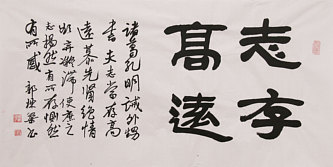 志存
高遠
諸葛孔明誡外甥
書夫志當存高
遠慕先賢絕情
欲弃凝滞使庶之
志揭然有所存惻然
有所感